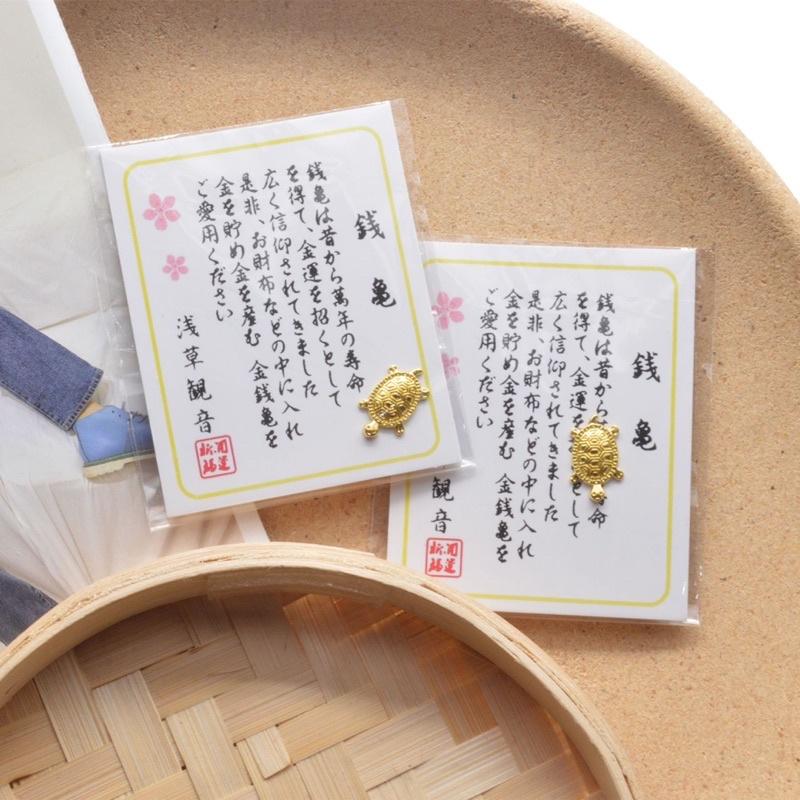 銭亀
銭亀は昔から萬年の寿命
を得て、金運を招くとして
広く信仰されてきました
是非、お財布などの中に入れ
金を貯め金を産む 金銭亀を
ご愛用ください
浅草観音
開運
祈福
銭亀
銭亀は昔から
命
を得て、金運を
として
広く信仰されてきました
是非、お財布などの中に入れ
金を貯め金を産む 金銭亀を
ご愛用ください
観音
開運
祈福